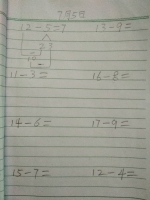 7月5日
12-5=7 13-9=
2 3
10
11-3= 16-8=
14-6= 17-9=
15-7= 12-4=